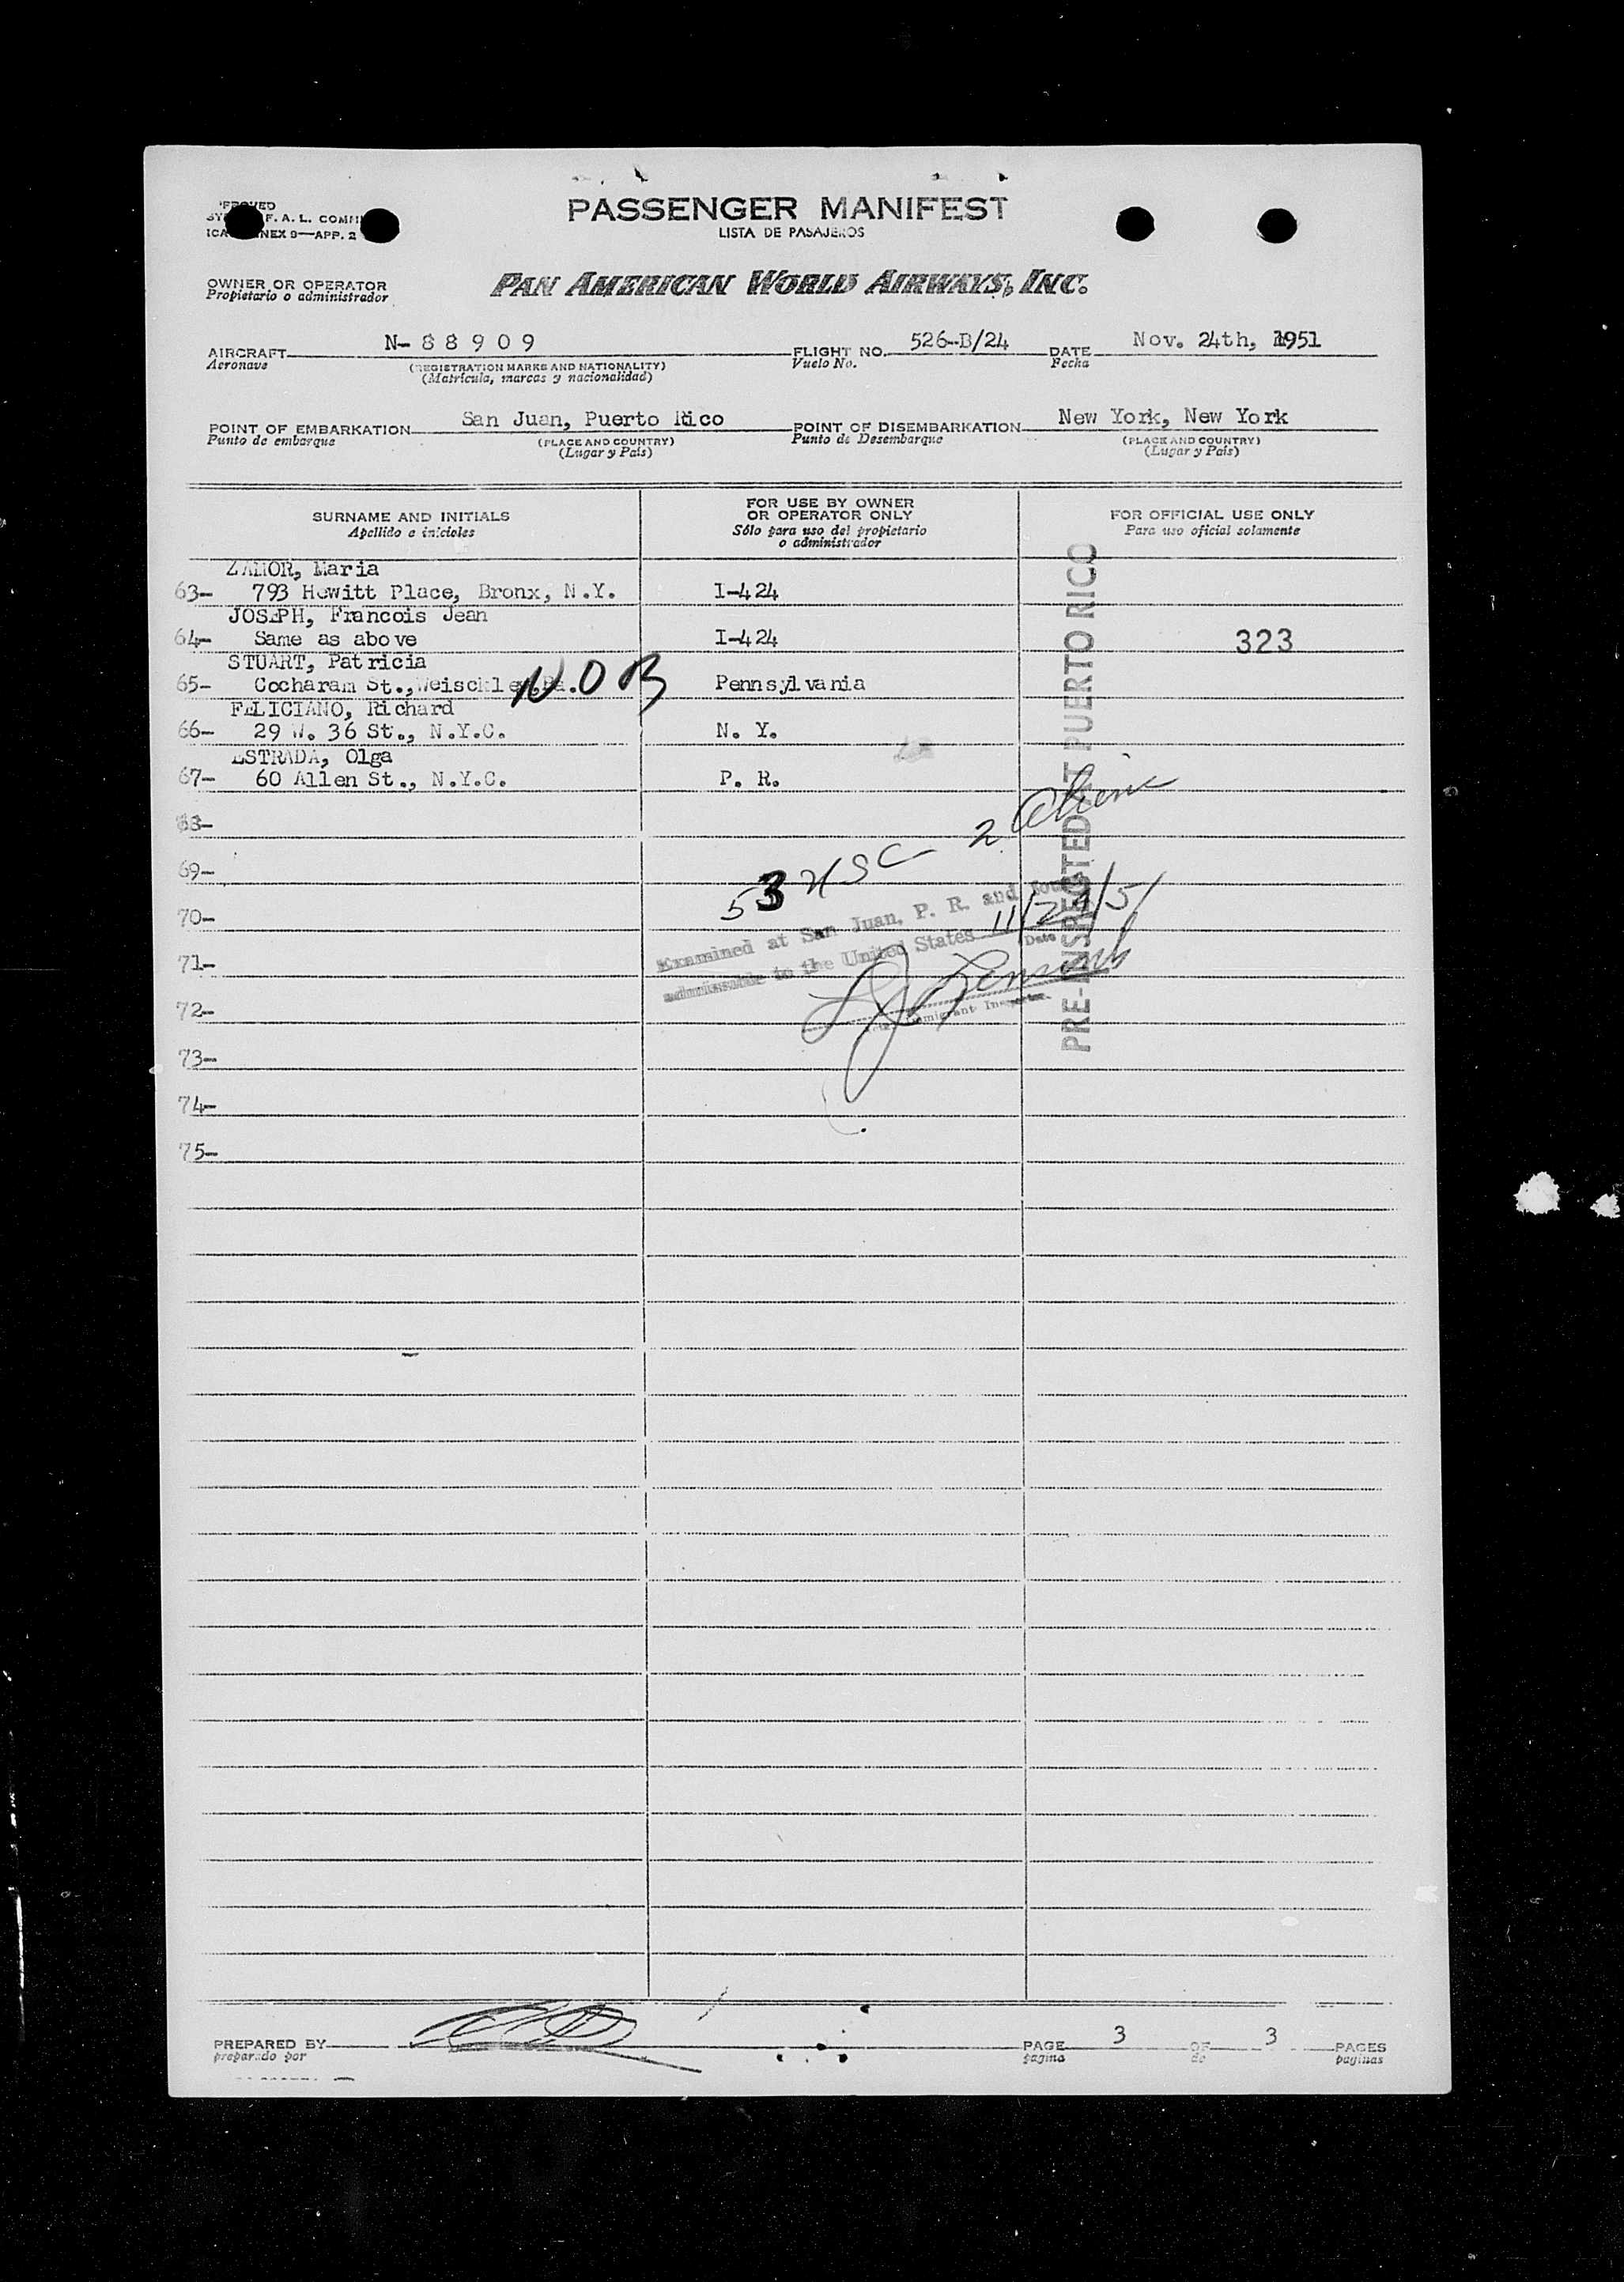 PASSENGER MANIFEST
LISTA DE PASAJEROS
F. A. L.
9—APP. 2
OWNER OR OPERATOR
Propietario o administrador
PAN AMERICAN WORLD AIRWAYS, INC.
AIRCRAFT N- 8 8 9 0 9 FLIGHT NO. 526-B/24 DATE Nov. 24th, 1951
Aeronave (REGISTRATION MARKS AND NATIONALITY) Vuelo No. Fecha
(Matrícula, marcas y nacionalidad)
POINT OF EMBARKATION San Juan, Puerto Rico POINT OF DISEMBARKATION New York, New York
Punto de embarque (PLACE AND COUNTRY) Punto de Desembarque (PLACE AND COUNTRY)
(Lugar y País) (Lugar y País)
SURNAME AND INITIALS
Apellido e iniciales
FOR USE BY OWNER
OR OPERATOR ONLY
Sólo para uso del propietario
o administrador
FOR OFFICIAL USE ONLY
Para uso oficial solamente
ZAMOR, Maria
63- 793 Hewitt Place, Bronx, N.Y. I-424
JOSEPH, Francois Jean
64- Same as above I-424 323
STUART, Patricia
65- Cocharam St., N.O B Pennsylvania
FELICIANO, Richard
66- 29 W. 36 St., N.Y.C. N. Y.
ESTRADA, Olga
67- 60 Allen St., N.Y.C. P. R.
68-
69-
70-
71-
72-
73-
74-
75-
53 USC 2 Aliens
Examined at San Juan, P. R. and found
admissable to the United States 11/24/51
Date
Immigrant Inspector
PRE-INSPECTED AT PUERTO RICO
PREPARED BY PAGE 3 OF 3 PAGES
preparado por pagina de paginas